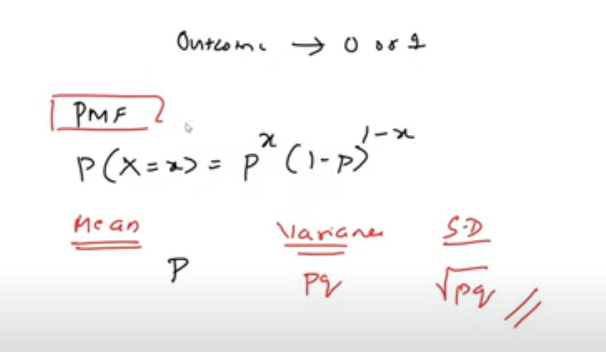 Outcome → 0 or 1
PMF
P(X=x) = p^x (1-p)^1-x
Mean Variance S.D
P pq √pq //